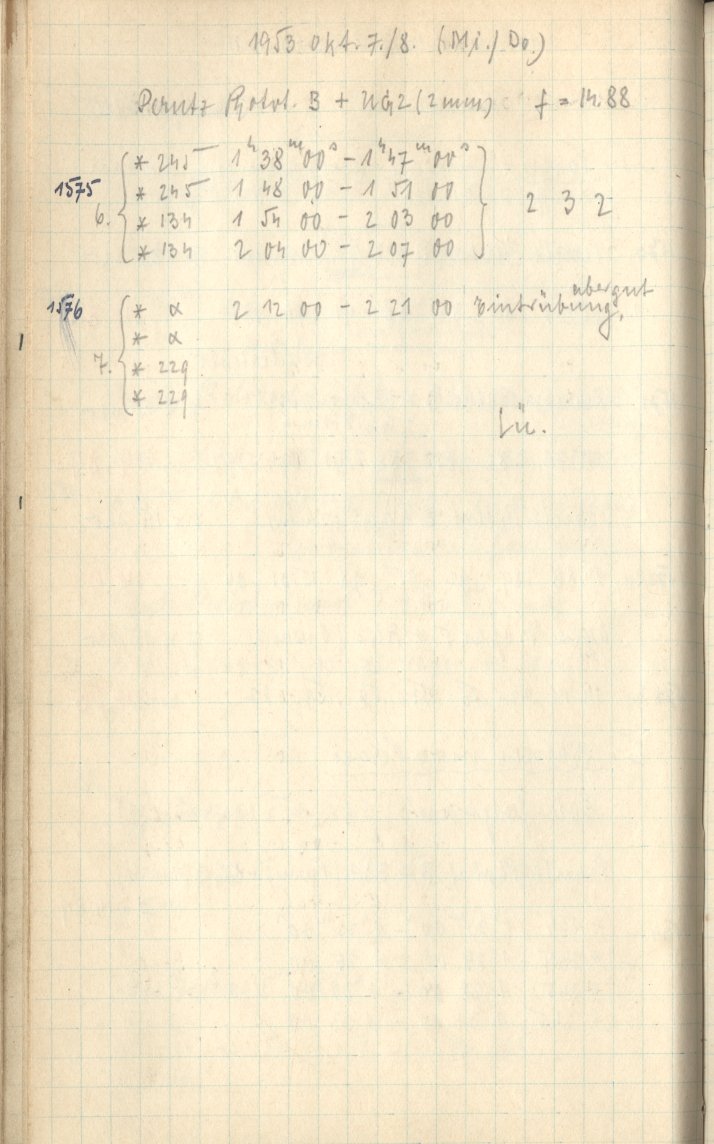 1953 Okt. 7./8. (Mi./Do.)
Perutz Photot. B + UG2 (2mm) f = 14.88
1575
6.
* 245 1ʰ 38ᵐ 00ˢ – 1ʰ 47ᵐ 00ˢ
* 245 1 48 00 – 1 51 00
* 134 1 54 00 – 2 03 00
* 134 2 04 00 – 2 07 00
2 3 2
1576
7.
* α 2 12 00 – 2 21 00 Eintrübung,
* α
* 229
* 229
Lü.